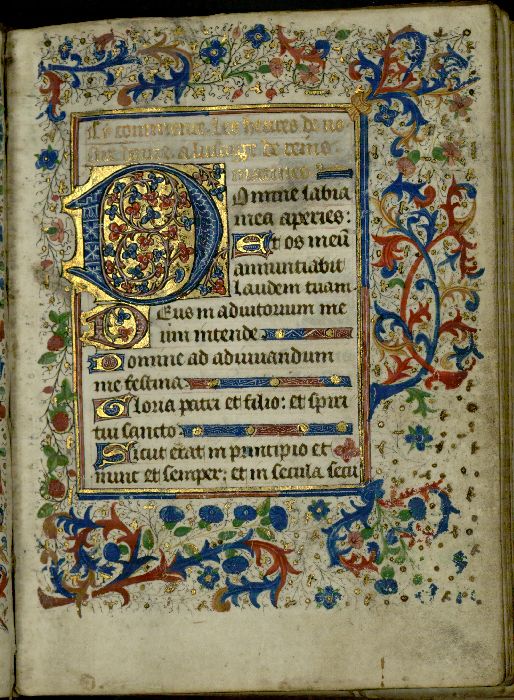 Cy commence les heures de no
stre dame a lusage de rems
matines
Domine labia
mea aperies:
Et os meū
annuntiabit
laudem tuam
Deus in adiutorium me
um intende
Domine ad adiuuandum
me festina
Gloria patri et filio: et spiri
tui sancto
Sicut erat in principio et
nunc et semper: et in secula secu